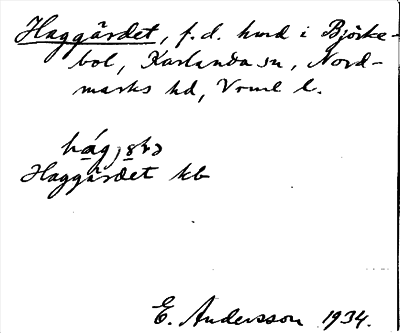 Haggärdet, f.d. hmd i Björke-
bol, Karlanda sn, Nord-
marks hd, Vrml l.
Haggärdet kb
E. Andersson 1934.